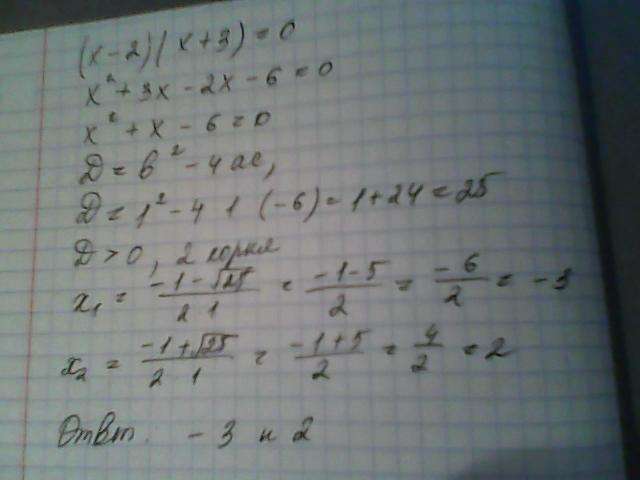 (x-2)(x+3)=0
x²+3x-2x-6=0
x²+x-6=0
D=b²-4ac,
D=1²-4 1 (-6)=1+24=25
D>0, 2 корня
x₁ = (-1-√25)/(2 1) = (-1-5)/2 = (-6)/2 = -3
x₂ = (-1+√25)/(2 1) = (-1+5)/2 = 4/2 = 2
Ответ. -3 и 2